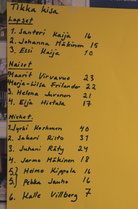 Tikka kisa
Lapset
1. Santeri Kaija 16
2. Johanna Häkinen 15
3. Essi Kaija 10
Naiset
Maarit Virvamo 23
Marja-Liisa Frilander 22
3. Helena Juronen 21
4. Eija Hietala 17
Miehet.
1. Jyrki Korhonen 40
2. Sakari Ristu 31
3. Juhani Räty 24
4. Jarmo Häkinen 18
5. Heimo Kippola 16
5. Pekka Jauho 16
6. Kalle Vissberg 7